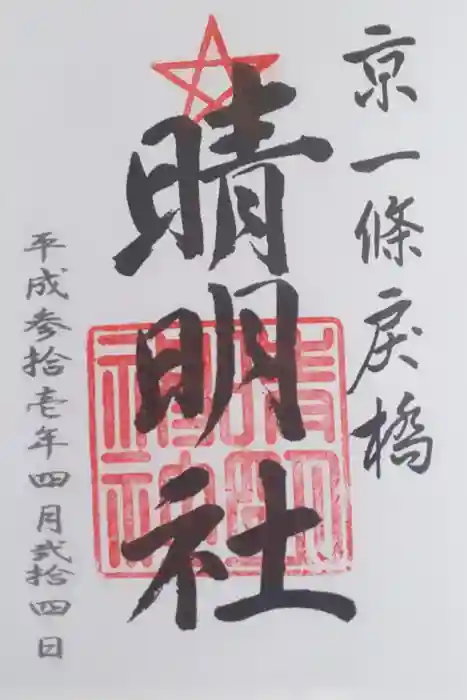 京一條戻橋
晴明社
平成参拾壱年四月弐拾四日